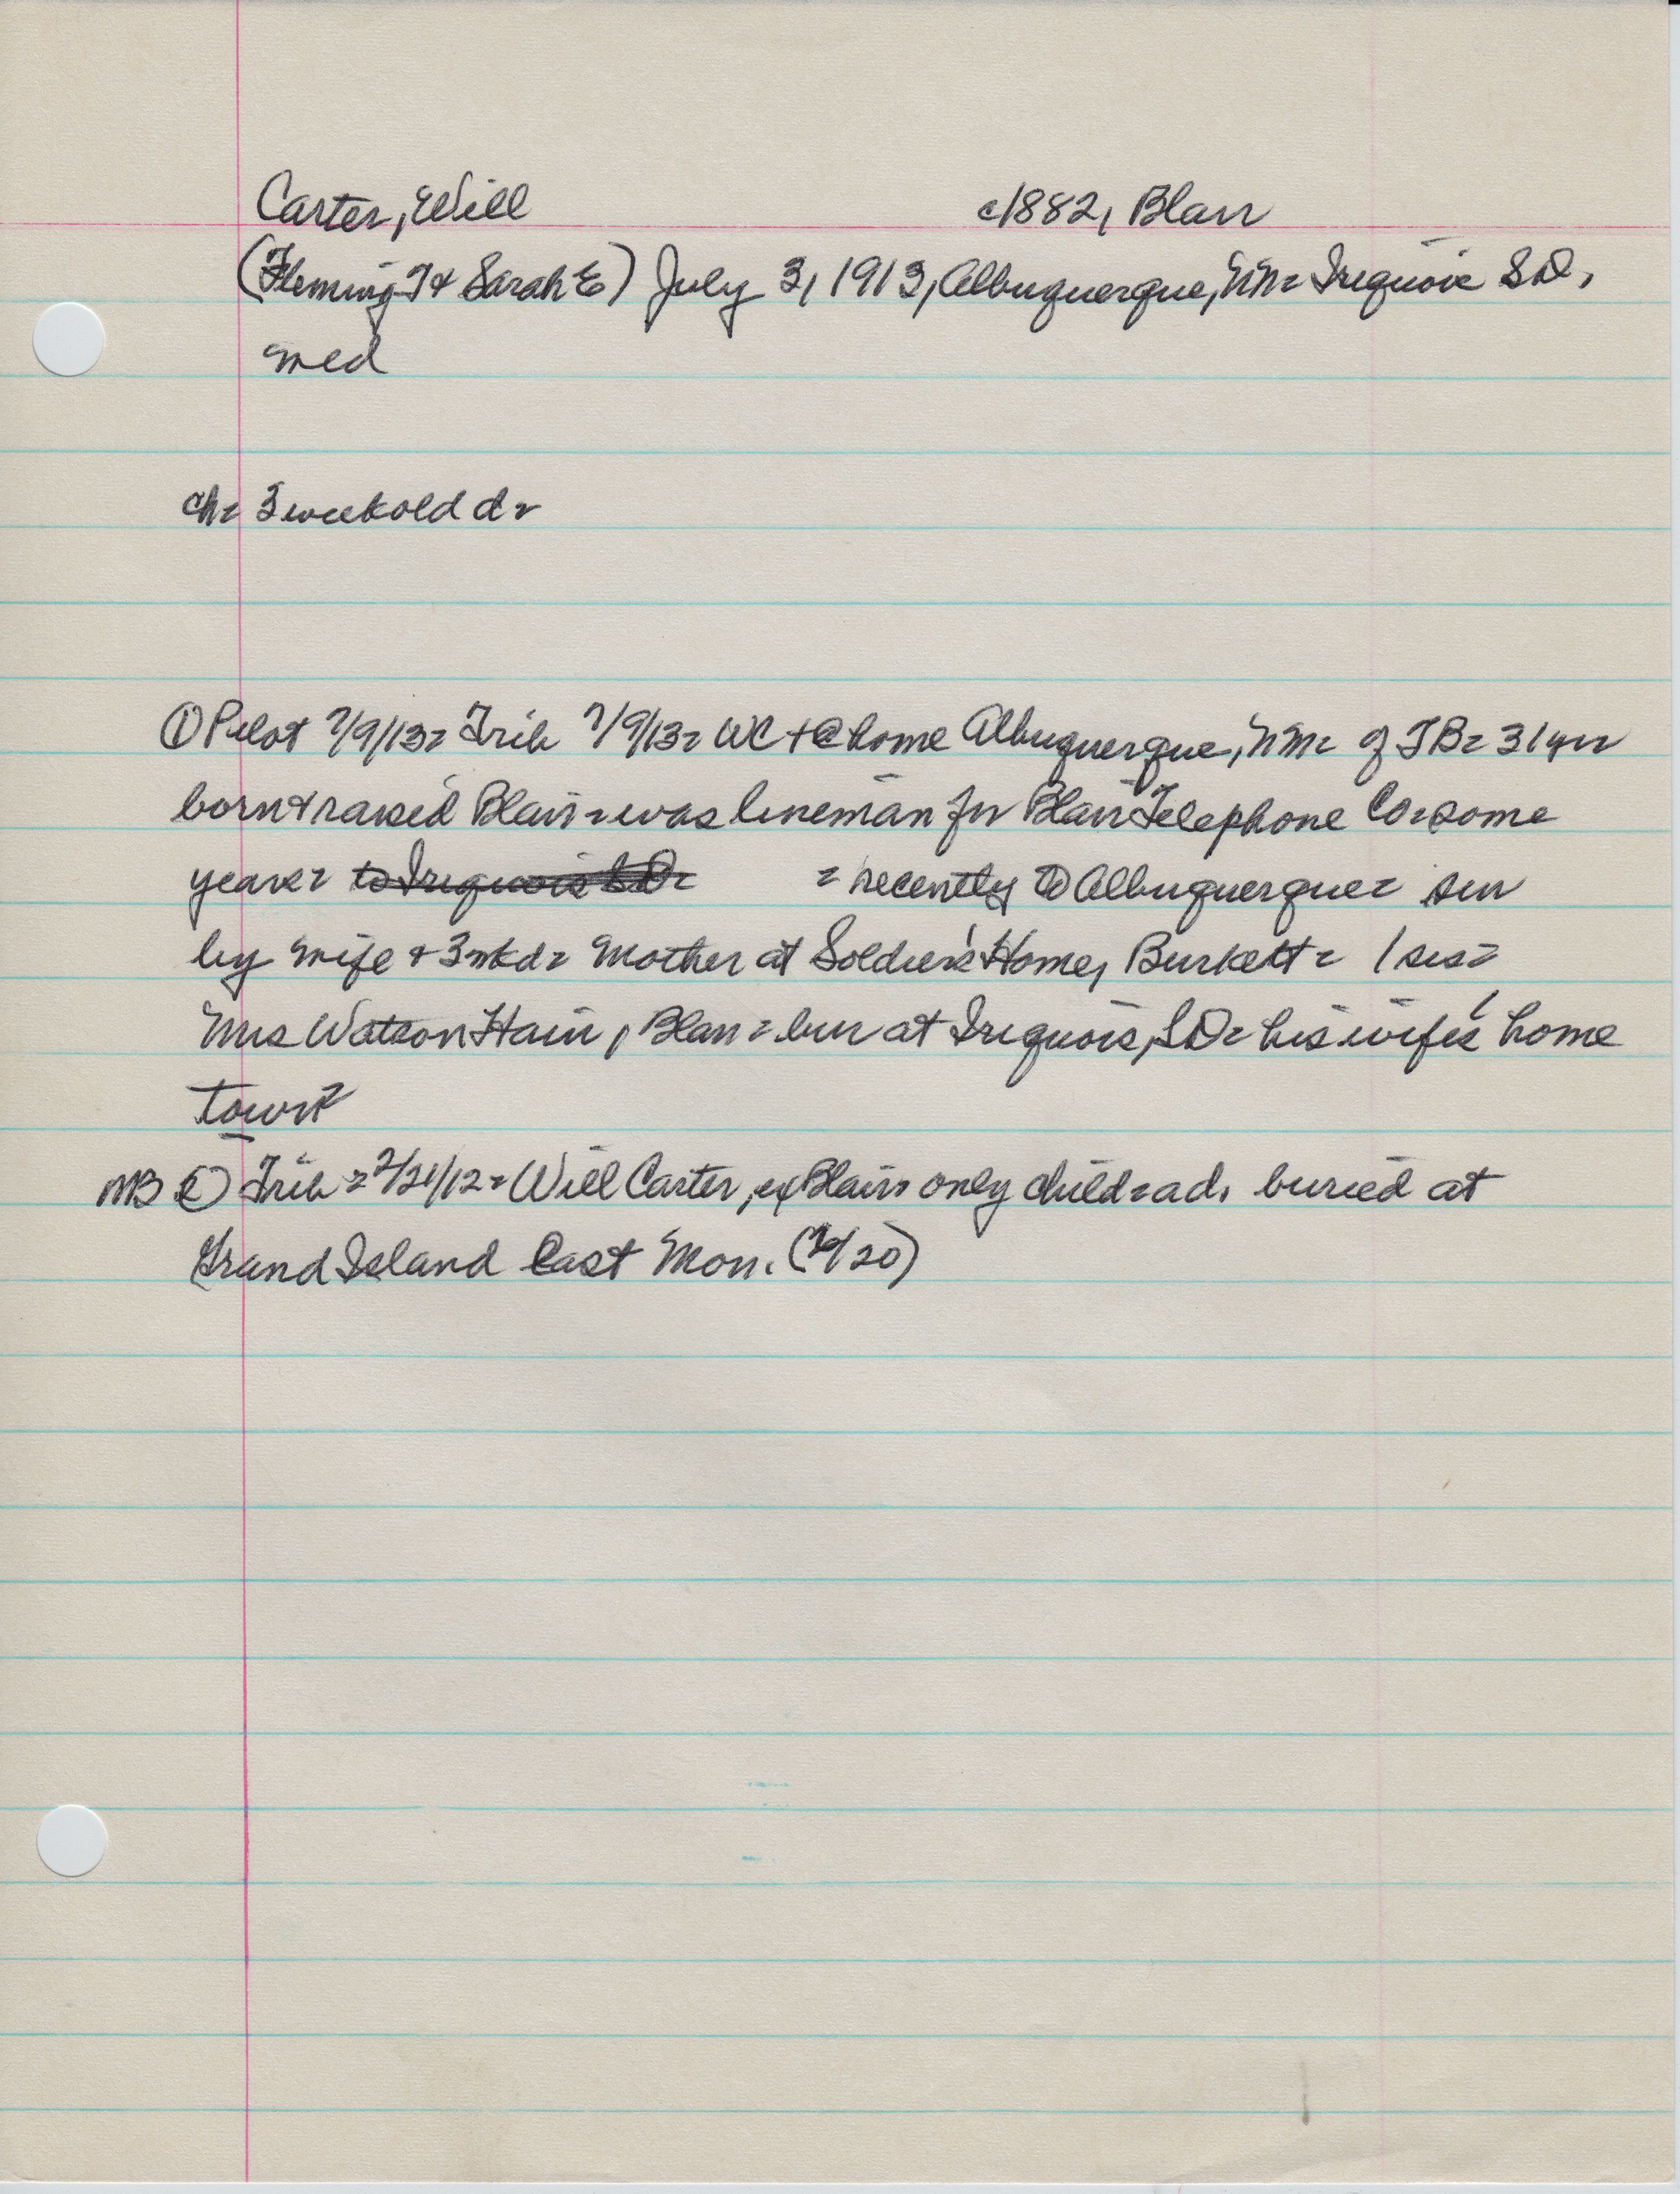 Carter, Will c1882, Blair
(Fleming T + Sarah E) July 3, 1913, Albuquerque, NM= Iriquois SD,
med
ch= 3 weekold d=
① Pilot 7/9/13= Trib 7/9/13= WC + @ home Albuquerque, NM= of TB= 31yr=
born + raised Blair= was lineman for Blair Telephone Co= some
years= to Iriquois SD= = recently to Albuquerque= sur
by wife + 3wkd= Mother at Soldier's Home, Burkett= 1 sis=
Mrs Watson Hain, Blair= bur at Iriquois, SD= his wife's home
town=
NB Trib= 2/21/12= Will Carter, ex Blair= only child= ad. buried at
Grand Island Last Mon. ( /20)